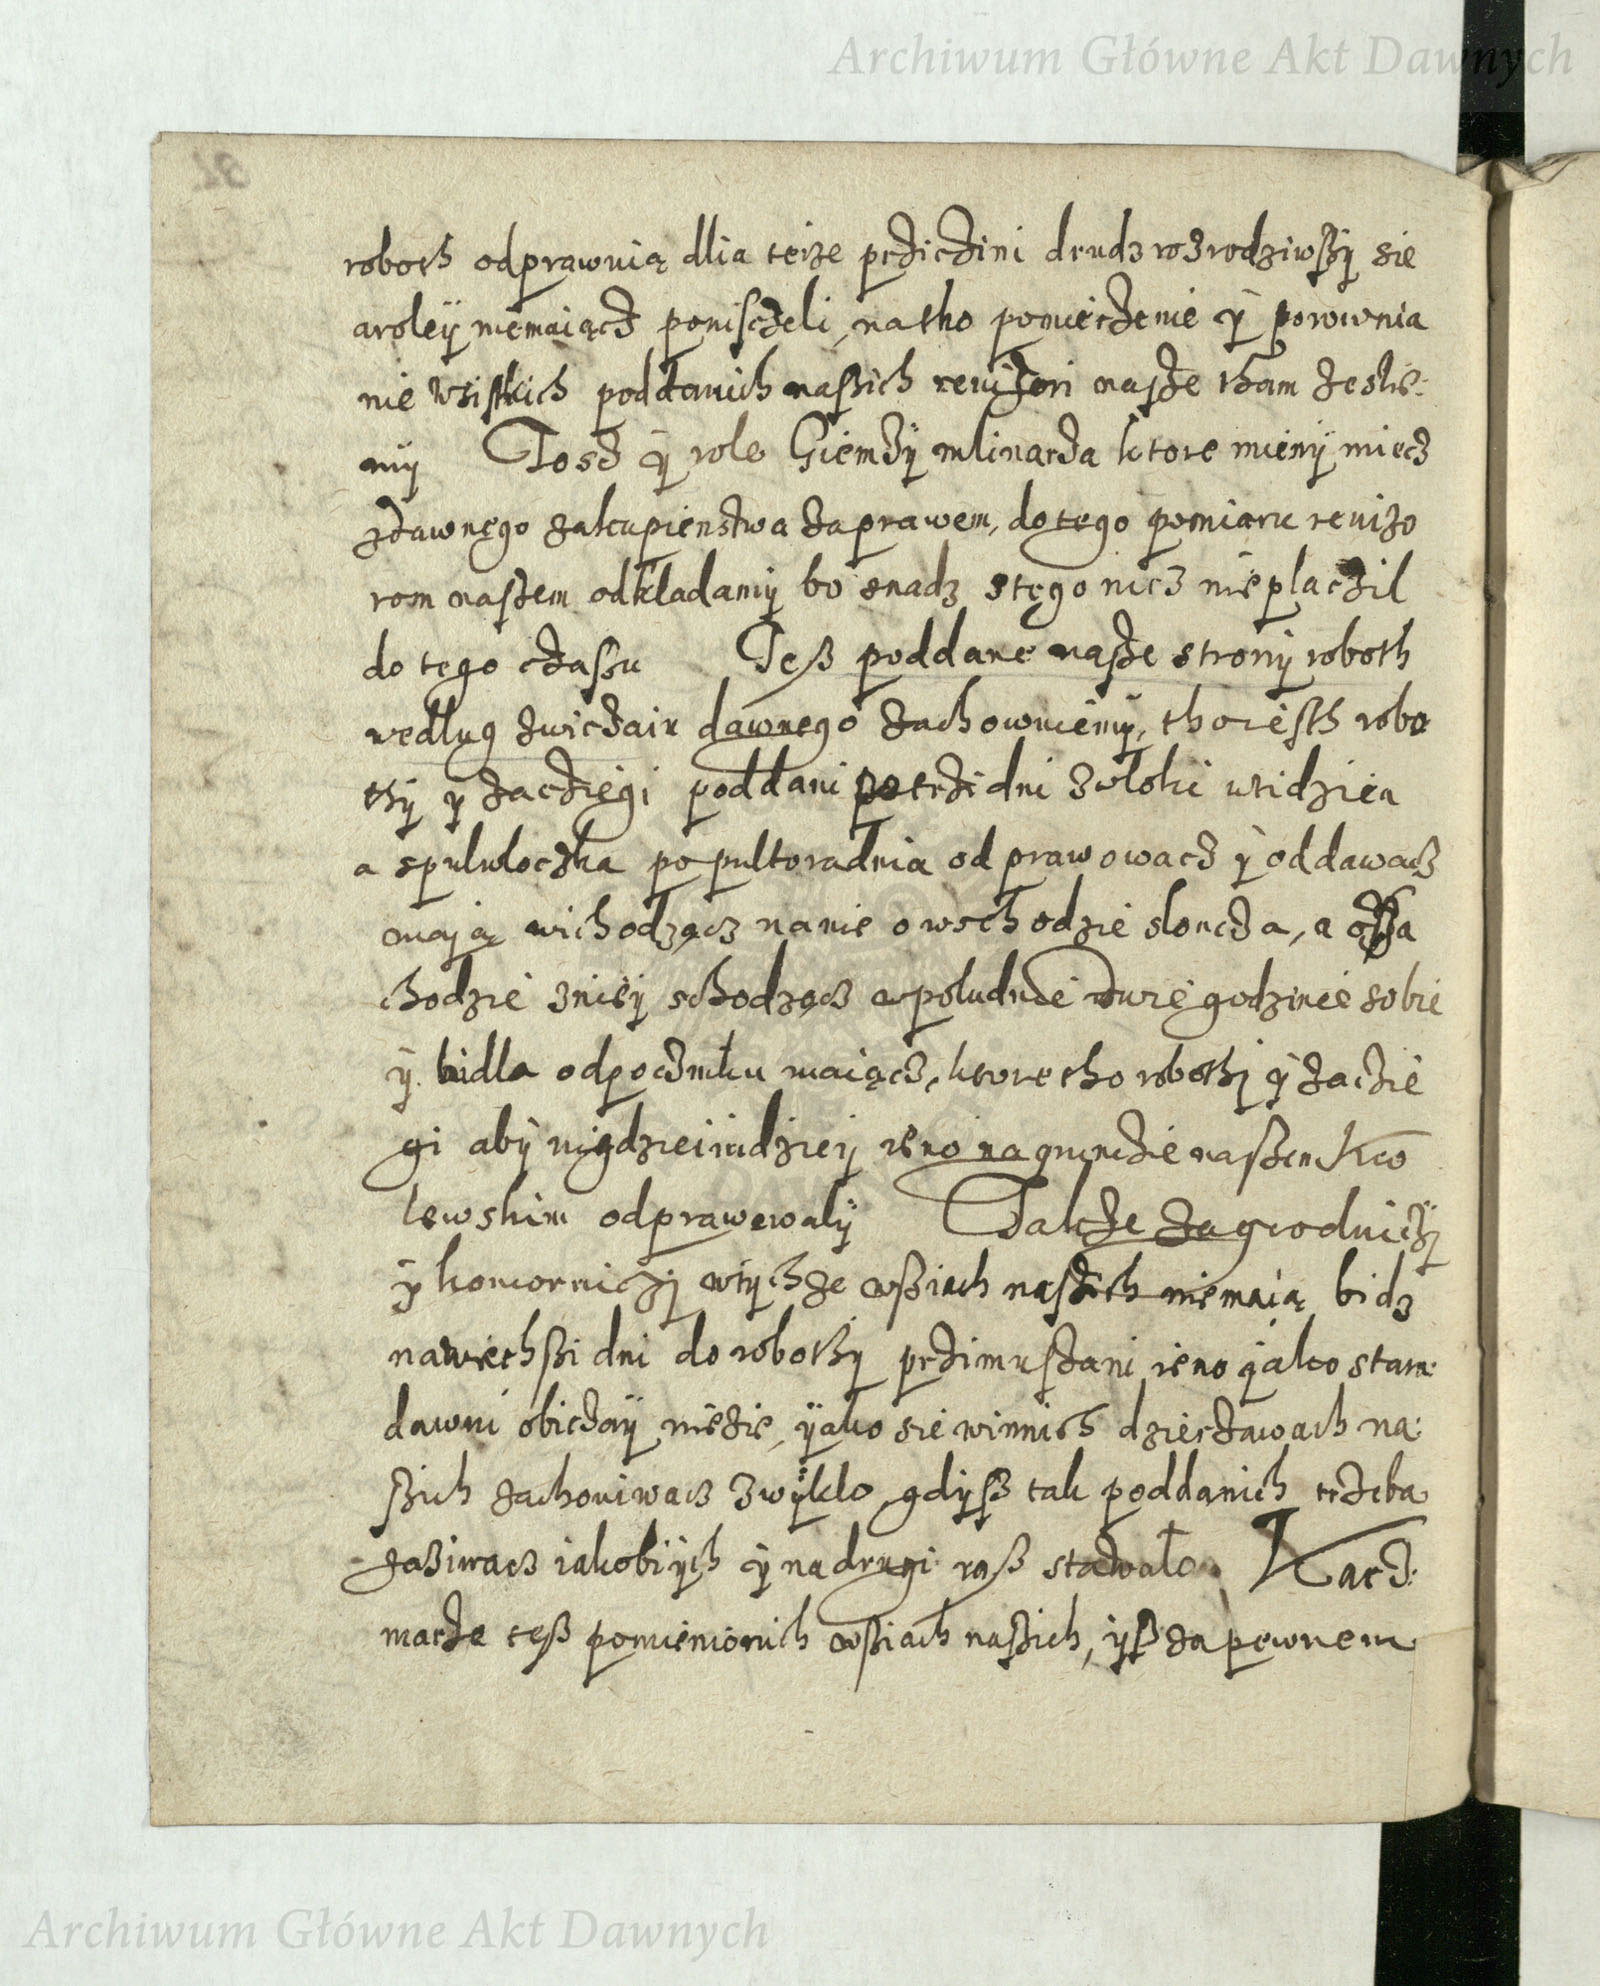 Archiwum Główne Akt Dawnych
roboth odprawuią dlia teize prziczini drudz rozrodziwszÿ sie
a rolëÿ niemaiącz poniszczeli, na tho pomierzenie ÿ porowna
nie wsistkich poddanich naszich revizori nasze tham zeslie:
mÿ Tosz ÿ role Giemzÿ mlinarza ktore mienÿ miecz
zdawnego zakupienstwa za prawem, do tego pomiaru revizo
rom naszem odkladamÿ bo snadz s tego nicz nie placzil
do tego czassu Tesz poddane nasze stronÿ roboth
wedlug zwiczaiu dawnego zachowuiemÿ, tho iesth robo
thÿ ÿ zacziegi poddani po trzi dni z wloki w tidzien
a s pulwloczka po pultoradnia odprawowacz ÿ oddawacz
maią wichodzącz na nie o wschodzie sloncza, a o za
chodzie z niëÿ schodzącz w poludnie dwie godzinie sobie
ÿ bidla odpoczinku maiącz, ktore tho robothÿ ÿ zaczie
gi abÿ nigdzieindziëÿ ieno na gruncie naszem Kro
lewskim odprawowalÿ Takze zagrodniczÿ
ÿ komorniczÿ w tÿchze wsiach naszich nie maią bidz
na wiethszi dni do robothÿ przimuszani ieno iako staro
dawni obiczaÿ niesie, ÿako sie w innich dzierzawach na:
szich zachowiwacz zwÿklo, gdÿsz tak poddanich trzeba
zaziwacz iakobiÿch ÿ na drugi rasz stawało. Karcz:
marze tesz pomienionich wsiach naszich, ÿsz za pewnem
Archiwum Główne Akt Dawnych